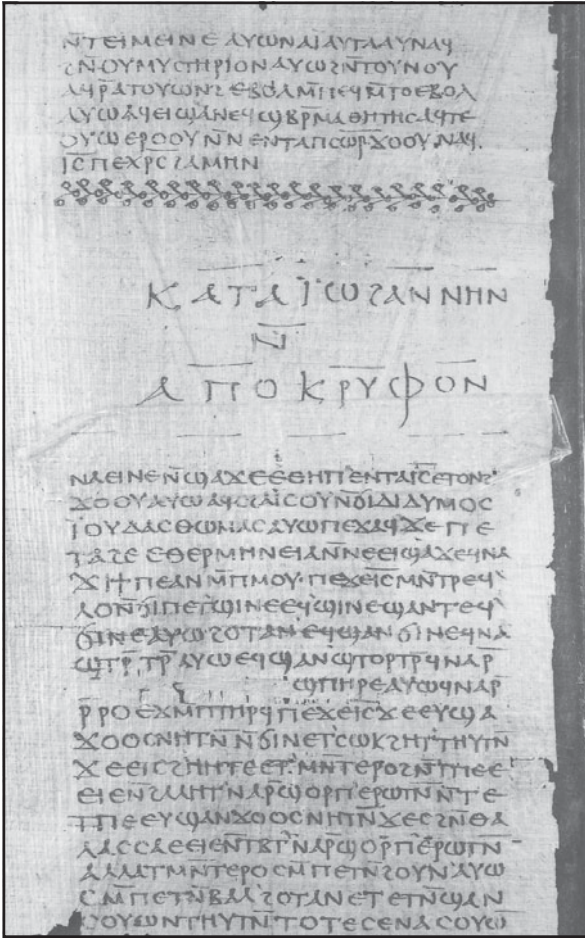 ⲛ̄ⲧⲉⲓⲙⲉⲓⲛⲉⲁⲩⲱⲛⲁⲓ̈ⲁⲩⲧⲁⲁⲩⲛⲁϥ
ϩⲛ̄ⲟⲩⲙⲩⲥⲧⲏⲣⲓⲟⲛⲁⲩⲱϩⲛ̄ⲧⲟⲩⲛⲟⲩ
ⲁϥⲣ̄ⲁⲧⲟⲩⲱⲛϩⲉⲃⲟⲗⲙ̄ⲡⲉϥⲙ̄ⲧⲟⲉⲃⲟⲗ
ⲁⲩⲱⲁϥⲉⲓϣⲁⲛⲉϥϣⲃⲣ̄ⲙⲁⲑⲏⲧⲏⲥⲁϥⲧⲉ
ⲟⲩⲱⲉⲣⲟⲟⲩⲛ̄ⲛⲉⲛⲧⲁⲡⲥⲱ̄ⲣ̄ϫⲟⲟⲩⲛⲁϥ.
ⲓ̄ⲥ̄ⲡⲉⲭ̄ⲣ̄ⲥ̄ϩⲁⲙⲏⲛ
ⲕⲁⲧⲁⲓ̈ⲱϩⲁⲛⲛⲏⲛ
ⲛ̄
ⲁⲡⲟⲕⲣⲩⲫⲟⲛ
ⲛⲁⲉⲓⲛⲉⲛ̄ϣⲁϫⲉⲉⲑⲏⲡ`ⲉⲛⲧⲁⲓ̄ⲥ̄ⲉⲧⲟⲛϩ
ϫⲟⲟⲩⲁⲩⲱⲁϥⲥϩⲁⲓ̈ⲥⲟⲩⲛ̄ϭⲓⲇⲓⲇⲩⲙⲟⲥ
ⲓ̈ⲟⲩⲇⲁⲥⲑⲱⲙⲁⲥⲁⲩⲱⲡⲉϫⲁϥϫⲉⲡⲉ
ⲧⲁϩⲉⲉⲑⲉⲣⲙⲏⲛⲉⲓⲁⲛ̄ⲛⲉⲉⲓϣⲁϫⲉϥⲛⲁ
ϫⲓϯⲡⲉⲁⲛⲙ̄ⲡⲙⲟⲩ·ⲡⲉϫⲉⲓ̄ⲥ̄ⲙⲛ̄ⲧⲣⲉϥ`
ⲗⲟⲛ̄ϭⲓⲡⲉⲧ`ϣⲓⲛⲉⲉϥϣⲓⲛⲉϣⲁⲛⲧⲉϥ`
ϭⲓⲛⲉⲁⲩⲱϩⲟⲧⲁⲛ`ⲉϥϣⲁⲛϭⲓⲛⲉϥⲛⲁ
ϣⲧⲣ̄ⲧⲣ̄ⲁⲩⲱⲉϥϣⲁⲛϣⲧⲟⲣⲧⲣ̄ϥⲛⲁⲣ̄
ϣⲡⲏⲣⲉⲁⲩⲱϥⲛⲁⲣ̄
ⲣ̄ⲣⲟⲉϫⲙ̄ⲡⲧⲏⲣϥⲡⲉϫⲉⲓ̄ⲥ̄ϫⲉⲉⲩϣⲁ
ϫⲟⲟⲥⲛⲏⲧⲛ̄ⲛ̄ϭⲓⲛⲉⲧ`ⲥⲱⲕϩⲏⲧ`ⲧⲏⲩⲧⲛ̄
ϫⲉⲉⲓⲥϩⲏⲏⲧⲉⲉⲧ`ⲙⲛ̄ⲧⲉⲣⲟϩⲛ̄ⲧⲡⲉⲉ
ⲉⲓⲉⲛ̄ϩⲁⲗⲏⲧ`ⲛⲁⲣ̄ϣⲟⲣⲡ`ⲉⲣⲱⲧⲛ̄ⲛ̄ⲧⲉ
ⲧⲡⲉⲉⲩϣⲁⲛϫⲟⲟⲥⲛⲏⲧⲛ̄ϫⲉⲥϩⲛ̄ⲑⲁ
ⲗⲁⲥⲥⲁⲉⲉⲓⲉⲛ̄ⲧⲃⲧ`ⲛⲁⲣ̄ϣⲟⲣⲡ`ⲉⲣⲱⲧⲛ̄
ⲁⲗⲗⲁⲧⲙⲛ̄ⲧⲉⲣⲟⲥⲙ̄ⲡⲉⲧⲛ̄ϩⲟⲩⲛ`ⲁⲩⲱ
ⲥⲙ̄ⲡⲉⲧⲛ̄ⲃⲁⲗ`ϩⲟⲧⲁⲛⲉⲧⲉⲧⲛ̄ϣⲁⲛ
ⲥⲟⲩⲱⲛⲧⲏⲩⲧⲛ̄ⲧⲟⲧⲉⲥⲉⲛⲁⲥⲟⲩⲱ